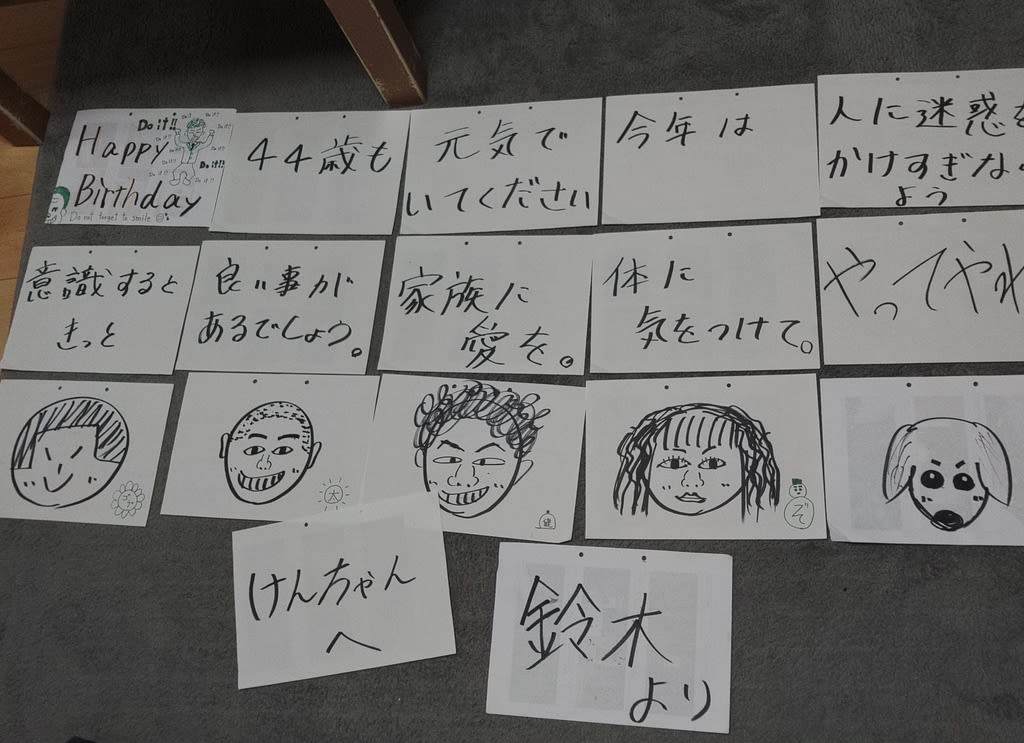 Happy
Birthday
Do it!!
Do it!!
Do not forget to smile
44歳も
元気で
いてください
今年は
人に迷惑を
かけすぎな
よう
意識すると
きっと
良い事が
あるでしょう。
家族に
愛を。
体に
気をつけて。
やってやれ
太
健
ぞ
けんちゃん
へ
鈴木
より